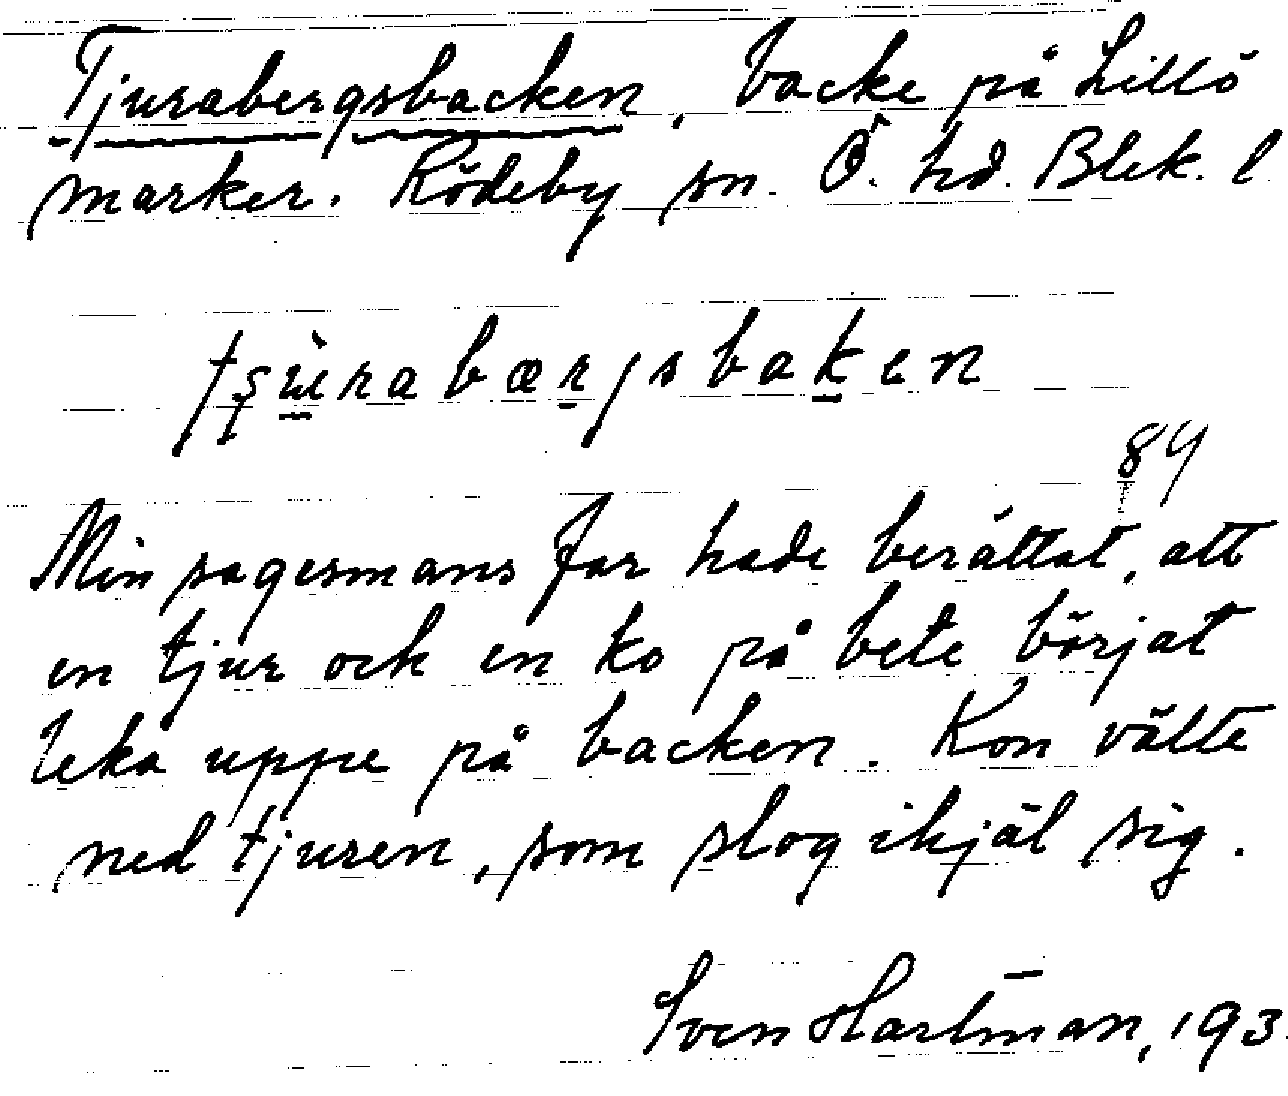 Tjurabergsbacken, backe på Lillö
marker. Rödeby sn. Ö. hd. Blek. l
84
Min sagesmans far hade berättat, att
en tjur och en ko på bete börjat
leka uppe på backen. Kon välte
ned tjuren, som slog ihjäl sig.
Sven Hartman, 193